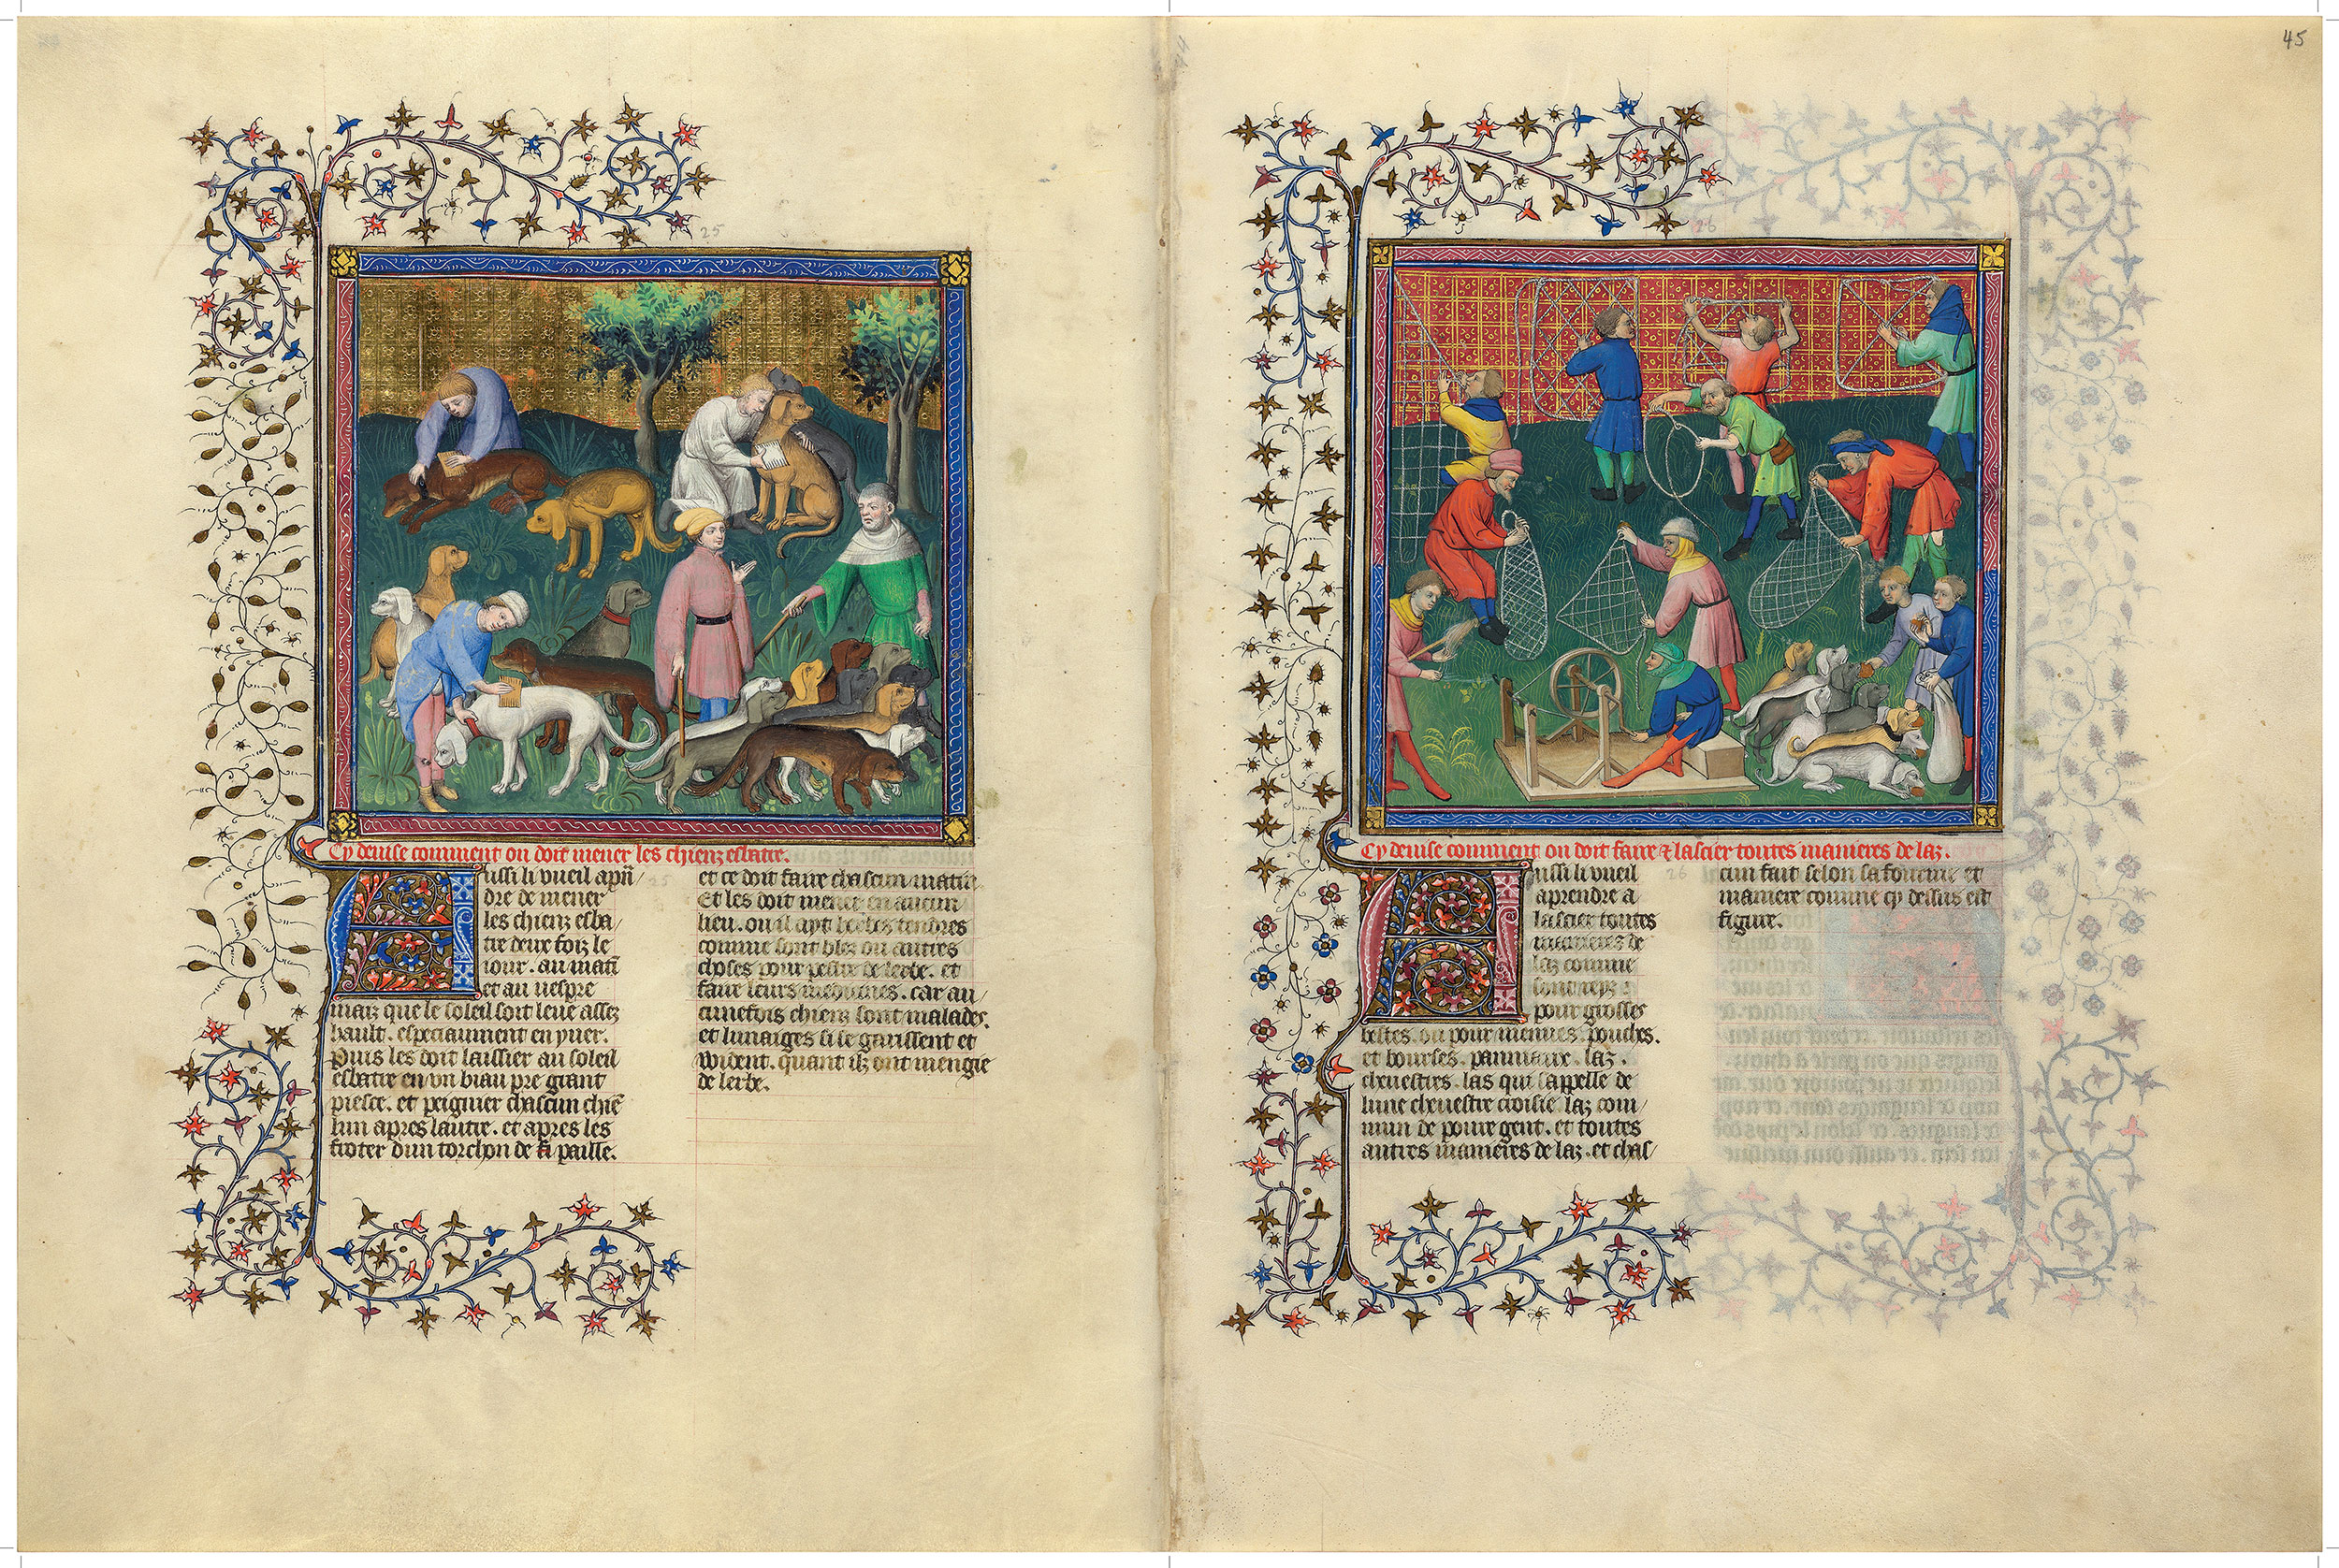 25
Cy deuise comment on doit mener les chienz esbatre.
Aussi li vueil apñ/
dre de mener
les chienz esba/
tre deux foiz le
iour. au matĩ
et au uespre
maiz que le soleil soit leue assez
hault. especiaument en yuer.
Puis les doit laissier au soleil
esbatre en vn biau pre grant
piesce. et peignier chascun chiẽ
lun apres lautre. et apres les
froter dun torchon de paille.
et ce doit faire chascun matin.
Et les doit mener en aucun
lieu. ou il ayt herbes tendres
comme sont blez ou autres
choses pour pestre de lerbe. et
faire leurs medicines. car au/
cunefois chienz sont malades.
et lunaiges si se garissent et
wident. quant ilz ont mengie
de lerbe.
45
26
Cy deuise comment on doit faire & lascier toutes manieres de laz.
Aussi li vueil
aprendre a
lascier toutes
manieres de
laz comme
sont rez
pour grosses
bestes. ou pour menues. pouches.
et bourses. panniaux. laz.
cheuestres. las qui sappelle de
lune cheuestre croisie. laz com/
mun de poure gent. et toutes
autres manieres de laz. et chas/
cun fait selon sa fourme et
maniere comme cy dessus est
figure.